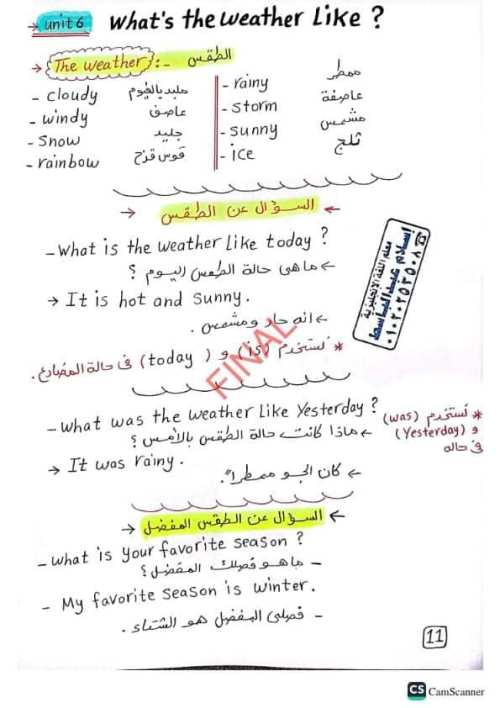 → unit 6 What's the weather Like ?
→ {The weather}:- الطقس
- cloudy ملبد بالغيوم
- windy عاصف
- Snow جليد
- rainbow قوس قزح
- rainy ممطر
- storm عاصفة
- sunny مشمس
- ice ثلج
→ السؤال عن الطقس ←
- What is the weather Like today ?
← ما هى حالة الطقس اليوم ؟
→ It is hot and Sunny.
← انه حار ومشمس .
* نستخدم (is) و (today) فى حالة المضارع .
FINAL
إسلام عبدالباسط
معلم اللغة الإنجليزية
- What was the weather Like Yesterday ?
← ماذا كانت حالة الطقس بالأمس ؟
* نستخدم (was)
و (Yesterday)
فى حاله
→ It was Rainy.
← كان الجو ممطراً.
→ السؤال عن الطقس المفضل ←
- what is your favorite season ?
- ما هو فصلك المفضل ؟
- My favorite season is winter.
- فصلى المفضل هو الشتاء .
11
CS CamScanner